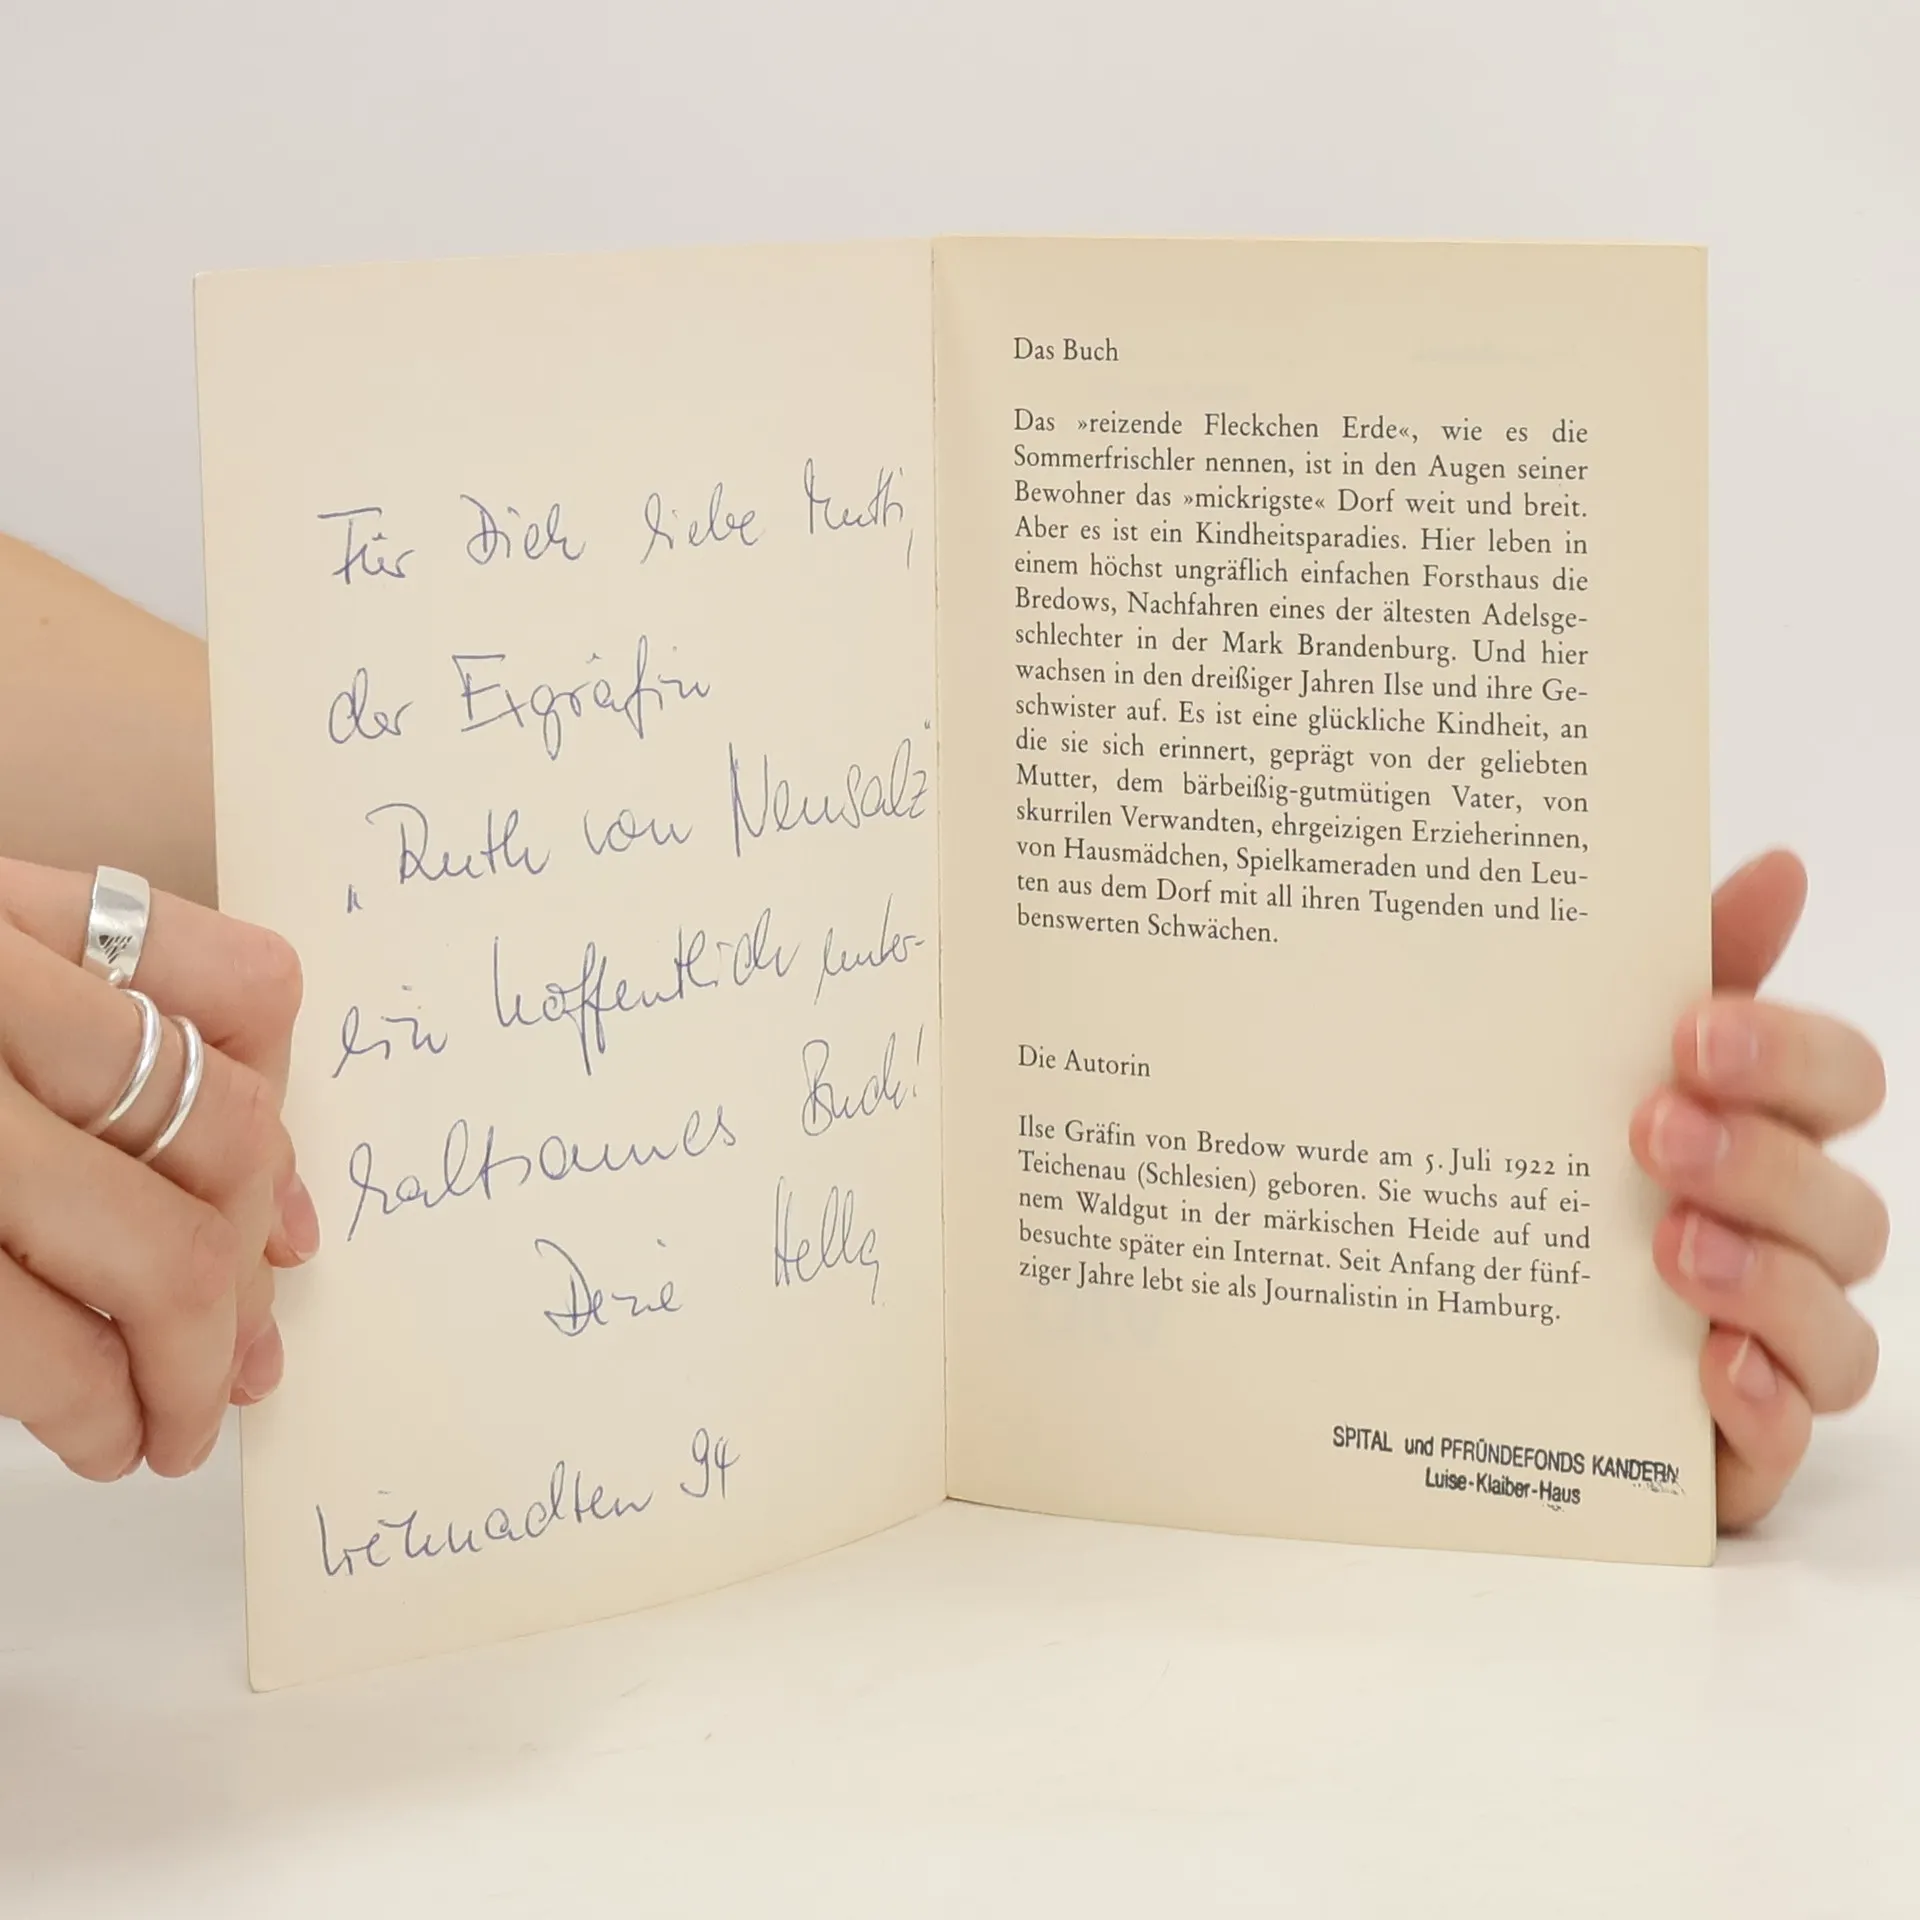 Für Dich liebe Mutti,
der Exgräfin
„Ruth von Neusalz"
ein hoffentlich unter-
haltsames Buch!
Deine Hella
Weihnachten 94
Das Buch
Das »reizende Fleckchen Erde«, wie es die
Sommerfrischler nennen, ist in den Augen seiner
Bewohner das »mickrigste« Dorf weit und breit.
Aber es ist ein Kindheitsparadies. Hier leben in
einem höchst ungräflich einfachen Forsthaus die
Bredows, Nachfahren eines der ältesten Adelsge-
schlechter in der Mark Brandenburg. Und hier
wachsen in den dreißiger Jahren Ilse und ihre Ge-
schwister auf. Es ist eine glückliche Kindheit, an
die sie sich erinnert, geprägt von der geliebten
Mutter, dem bärbeißig-gutmütigen Vater, von
skurrilen Verwandten, ehrgeizigen Erzieherinnen,
von Hausmädchen, Spielkameraden und den Leu-
ten aus dem Dorf mit all ihren Tugenden und lie-
benswerten Schwächen.
Die Autorin
Ilse Gräfin von Bredow wurde am 5. Juli 1922 in
Teichenau (Schlesien) geboren. Sie wuchs auf ei-
nem Waldgut in der märkischen Heide auf und
besuchte später ein Internat. Seit Anfang der fünf-
ziger Jahre lebt sie als Journalistin in Hamburg.
SPITAL und PFRÜNDEFONDS KANDERN
Luise-Klaiber-Haus